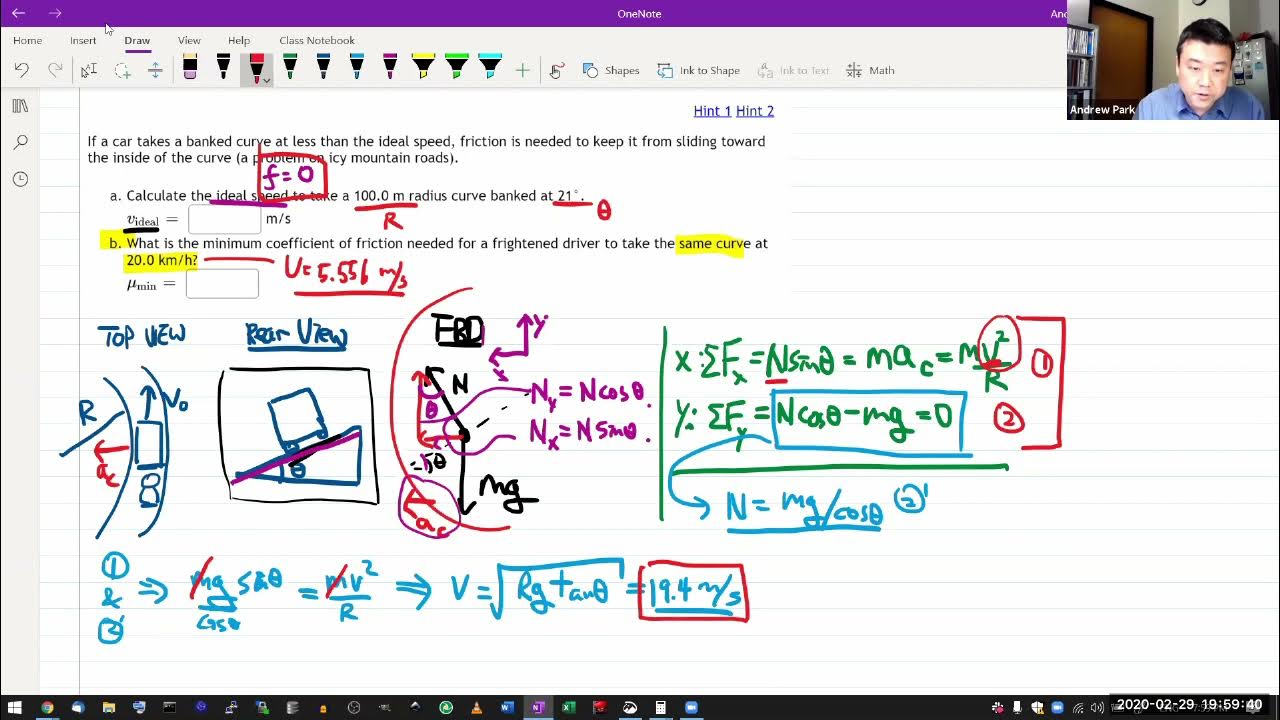 OneNote
And
Home Insert Draw View Help Class Notebook
Shapes Ink to Shape Ink to Text Math
Andrew Park
Hint 1 Hint 2
If a car takes a banked curve at less than the ideal speed, friction is needed to keep it from sliding toward
the inside of the curve (a problem on icy mountain roads).
f = 0
a. Calculate the ideal speed to take a 100.0 m radius curve banked at 21°.
θ
R
v_ideal = m/s
b. What is the minimum coefficient of friction needed for a frightened driver to take the same curve at
20.0 km/h?
V = 5.556 m/s
μ_min =
TOP VIEW
R
V₀
a_c
Rear View
θ
FBD
y
x
N
θ
N_y = N cosθ.
N_x = N sinθ.
mg
a_c
x: ΣF_x = N sinθ = ma_c = mv²/R ①
y: ΣF_y = N cosθ - mg = 0 ②
N = mg/cosθ ②'
① & ②' ⇒ mg sinθ/cosθ = mv²/R ⇒ V = √(Rg tanθ) = 19.4 m/s
2020-02-29 19:59:40